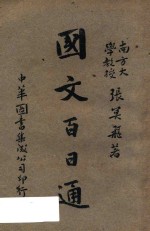 南方大
學教授
張冥飛著
國文百日通
中華圖書集成公司印行